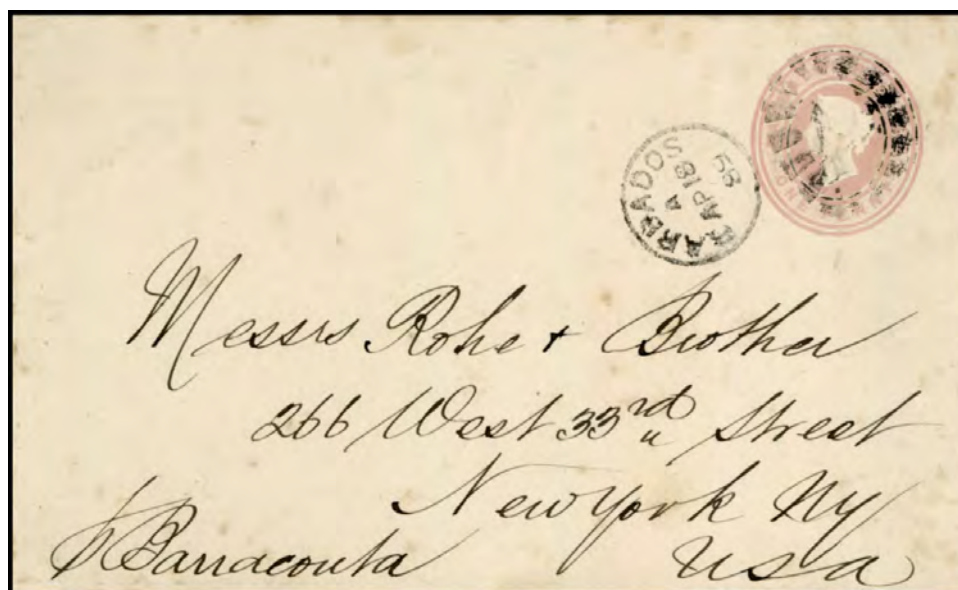 BARBADOS
A
AP 18
89
Messrs Rohe + Brother
266 West 33rd Street
New York NY
p Barracouta
USA